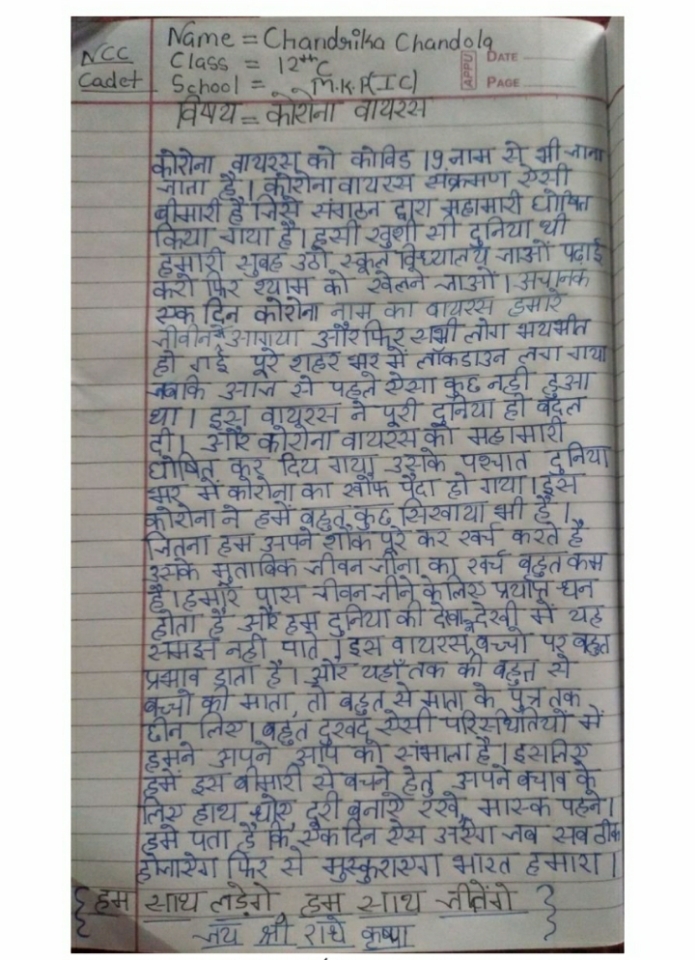 NCC
Cadet
Name = Chandrika Chandola
Class = 12th C
School = M.K.P(I C)
APPU
DATE
PAGE
विषय = कोरोना वायरस
कोरोना वायरस को कोविड 19 नाम से भी जाना
जाता है। कोरोना वायरस संक्रमण ऐसी
बीमारी है जिसे संगठन द्वारा महामारी घोषित
किया गया है। हसी खुशी सी दुनिया थी
हमारी सुबह उठो स्कूल विध्यालय जाओं पढ़ाई
करो फिर श्याम को खेलने जाओं। अचानक
एक दिन कोरोना नाम का वायरस हमारे
जीवीन में आगया और फिर सभी लोग भयभीत
हो गई पूरे शहर भर में लॉकडाउन लग गया
जबकि आज से पहले ऐसा कुछ नही हुआ
था। इस वायरस ने पूरी दुनिया ही बदल
दी। और कोरोना वायरस को महामारी
घोषित कर दिय गया उसके पश्चात दुनिया
भर में कोरोना का खौफ पैदा हो गया। इस
कोरोना ने हमें बहुत कुछ सिखाया भी है।
जितना हम अपने शौक पूरे कर खर्च करते है
उसके मुताबिक जीवन जीना का खर्च बहुत कम
है। हमारे पास जीवन जीने के लिए प्रर्याप्त धन
होता है और हम दुनिया की देखा देखी में यह
समझ नही पाते। इस वायरस बच्चो पर बहुत
प्रभाव डाला है। और यहाँ तक की बहुत से
बच्चो की माता, तो बहुत से माता के पुत्र तक
छीन लिए। बहुत दुखद ऐसी परिस्थितियों में
हमने अपने आप को संभाला है। इसलिए
हमें इस बीमारी से बचने हेतु अपने बचाव के
लिए हाथ धोए, दूरी बनाऐ रखे, मास्क पहने।
हमे पता है कि, एक दिन ऐस आऐगा जब सब ठीक
होजाऐगा फिर से मुस्कुराएगा भारत हमारा।
{ हम साथ लड़ेगे, हम साथ जीतेंगे }
जय श्री राधे कृष्णा